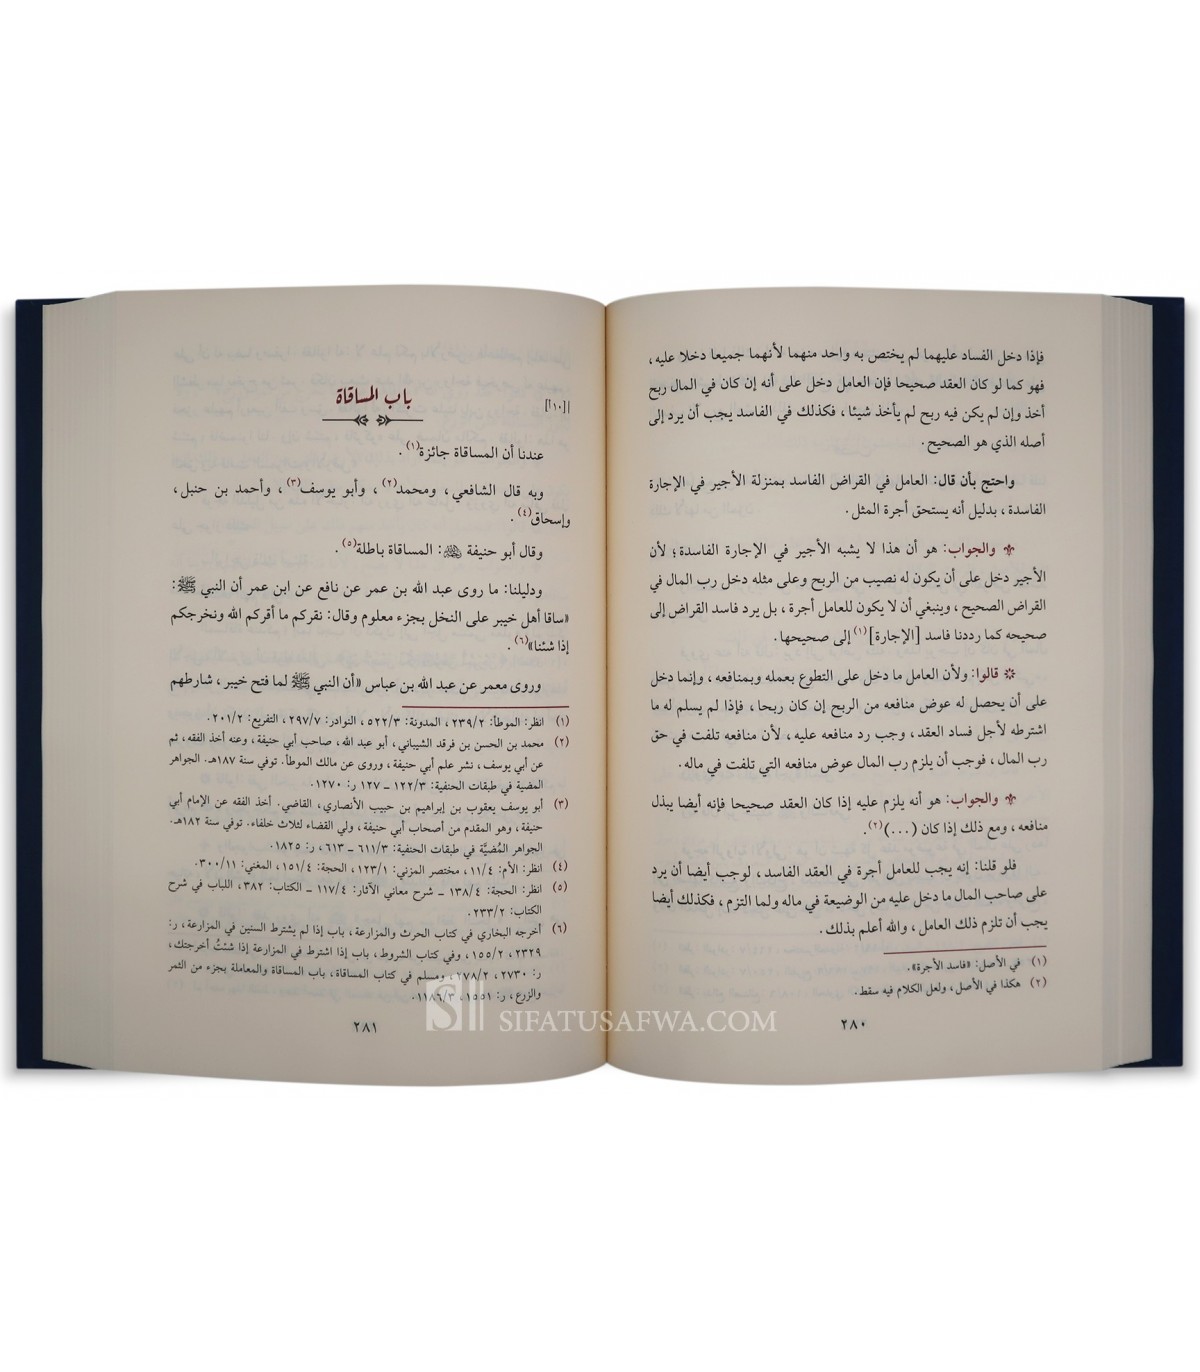 فإذا دخل الفساد عليهما لم يختص به واحد منهما لأنهما جميعا دخلا عليه،
فهو كما لو كان العقد صحيحا فإن العامل دخل على أنه إن كان في المال ربح
أخذ وإن لم يكن فيه ربح لم يأخذ شيئا، فكذلك في الفاسد يجب أن يرد إلى
أصله الذي هو الصحيح.
واحتج بأن قال: العامل في القراض الفاسد بمنزلة الأجير في الإجارة
الفاسدة، بدليل أنه يستحق أجرة المثل.
والجواب: هو أن هذا لا يشبه الأجير في الإجارة الفاسدة؛ لأن
الأجير دخل على أن يكون له نصيب من الربح وعلى مثله دخل رب المال في
القراض الصحيح، وينبغي أن لا يكون للعامل أجرة، بل يرد فاسد القراض إلى
صحيحه كما رددنا فاسد [الإجارة](١) إلى صحيحها.
قالوا: ولأن العامل ما دخل على التطوع بعمله وبمنافعه، وإنما دخل
على أن يحصل له عوض منافعه من الربح إن كان ربحا، فإذا لم يسلم له ما
اشترطه لأجل فساد العقد، وجب رد منافعه عليه، لأن منافعه تلفت في حق
رب المال، فوجب أن يلزم رب المال عوض منافعه التي تلفت في ماله.
والجواب: هو أنه يلزم عليه إذا كان العقد صحيحا فإنه أيضا يبذل
منافعه، ومع ذلك إذا كان (...)(٢).
فلو قلنا: إنه يجب للعامل أجرة في العقد الفاسد، لوجب أيضا أن يرد
على صاحب المال ما دخل عليه من الوضيعة في ماله ولما التزم، فكذلك أيضا
يجب أن تلزم ذلك العامل، والله أعلم بذلك.
(١) في الأصل: «فاسد الأجرة».
(٢) هكذا في الأصل، ولعل الكلام فيه سقط.
٢٨٠
[١٠أ]|
باب المساقاة
عندنا أن المساقاة جائزة(١).
وبه قال الشافعي، ومحمد(٢)، وأبو يوسف(٣)، وأحمد بن حنبل،
وإسحاق(٤).
وقال أبو حنيفة ﵀: المساقاة باطلة(٥).
ودليلنا: ما روى عبد الله بن عمر عن نافع عن ابن عمر أن النبي ﷺ:
«ساقا أهل خيبر على النخل بجزء معلوم وقال: نقركم ما أقركم الله ونخرجكم
إذا شئنا»(٦).
وروى معمر عن عبد الله بن عباس «أن النبي ﷺ لما فتح خيبر، شارطهم
(١) انظر: الموطأ: ٢٣٩/٢، المدونة: ٥٢٢/٣، النوادر: ٢٩٧/٧، التفريع: ٢٠١/٢.
(٢) محمد بن الحسن بن فرقد الشيباني، أبو عبد الله، صاحب أبي حنيفة، وعنه أخذ الفقه، ثم
عن أبي يوسف، نشر علم أبي حنيفة، وروى عن مالك الموطأ. توفي سنة ١٨٧هـ. الجواهر
المضية في طبقات الحنفية: ١٢٢/٣ ـ ١٢٧ ر: ١٢٧٠.
(٣) أبو يوسف يعقوب بن إبراهيم بن حبيب الأنصاري، القاضي. أخذ الفقه عن الإمام أبي
حنيفة، وهو المقدم من أصحاب أبي حنيفة، ولي القضاء لثلاث خلفاء. توفي سنة ١٨٢هـ.
الجواهر المُضيَّة في طبقات الحنفية: ٦١١/٣ ـ ٦١٣، ر: ١٨٢٥.
(٤) انظر: الأم: ١١/٤، مختصر المزني: ١٢٣/١، الحجة: ١٥١/٤، المغني: ٣٠٠/١١.
(٥) انظر: الحجة: ١٣٨/٤ ـ شرح معاني الآثار: ١١٧/٤ ـ الكتاب: ٣٨٢، اللباب في شرح
الكتاب: ٢٣٣/٢.
(٦) أخرجه البخاري في كتاب الحرث والمزارعة، باب إذا لم يشترط السنين في المزارعة، ر:
٢٣٢٩، ١٥٥/٢، وفي كتاب الشروط، باب إذا اشترط في المزارعة إذا شئتُ أخرجتك،
ر: ٢٧٣٠، ٢٧٨/٢، ومسلم في كتاب المساقاة، باب المساقاة والمعاملة بجزء من الثمر
والزرع، ر: ١٥٥١، ١١٨٦/٣.
٢٨١
SIFATUSAFWA.COM